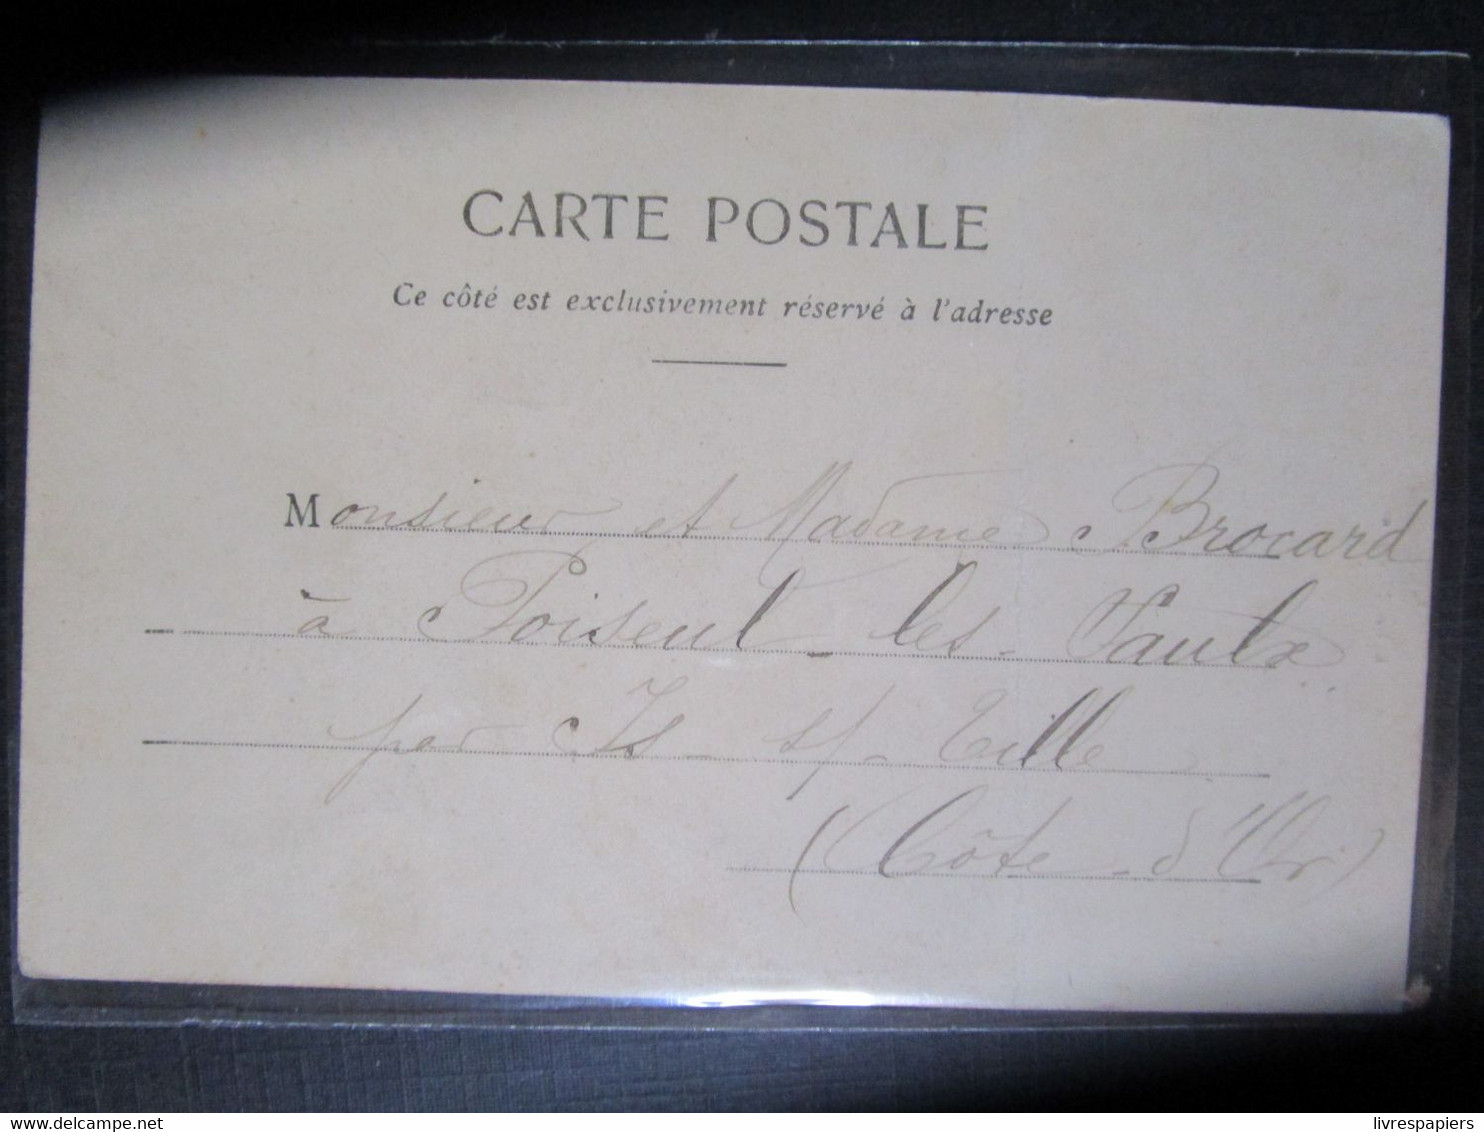 CARTE POSTALE
Ce côté est exclusivement réservé à l'adresse
Monsieur et Madame Brocard
à Poiseul-les-Saulx
par Is-s/-Tille
(Côte-d'Or)
delcampe.net
livrespapiers